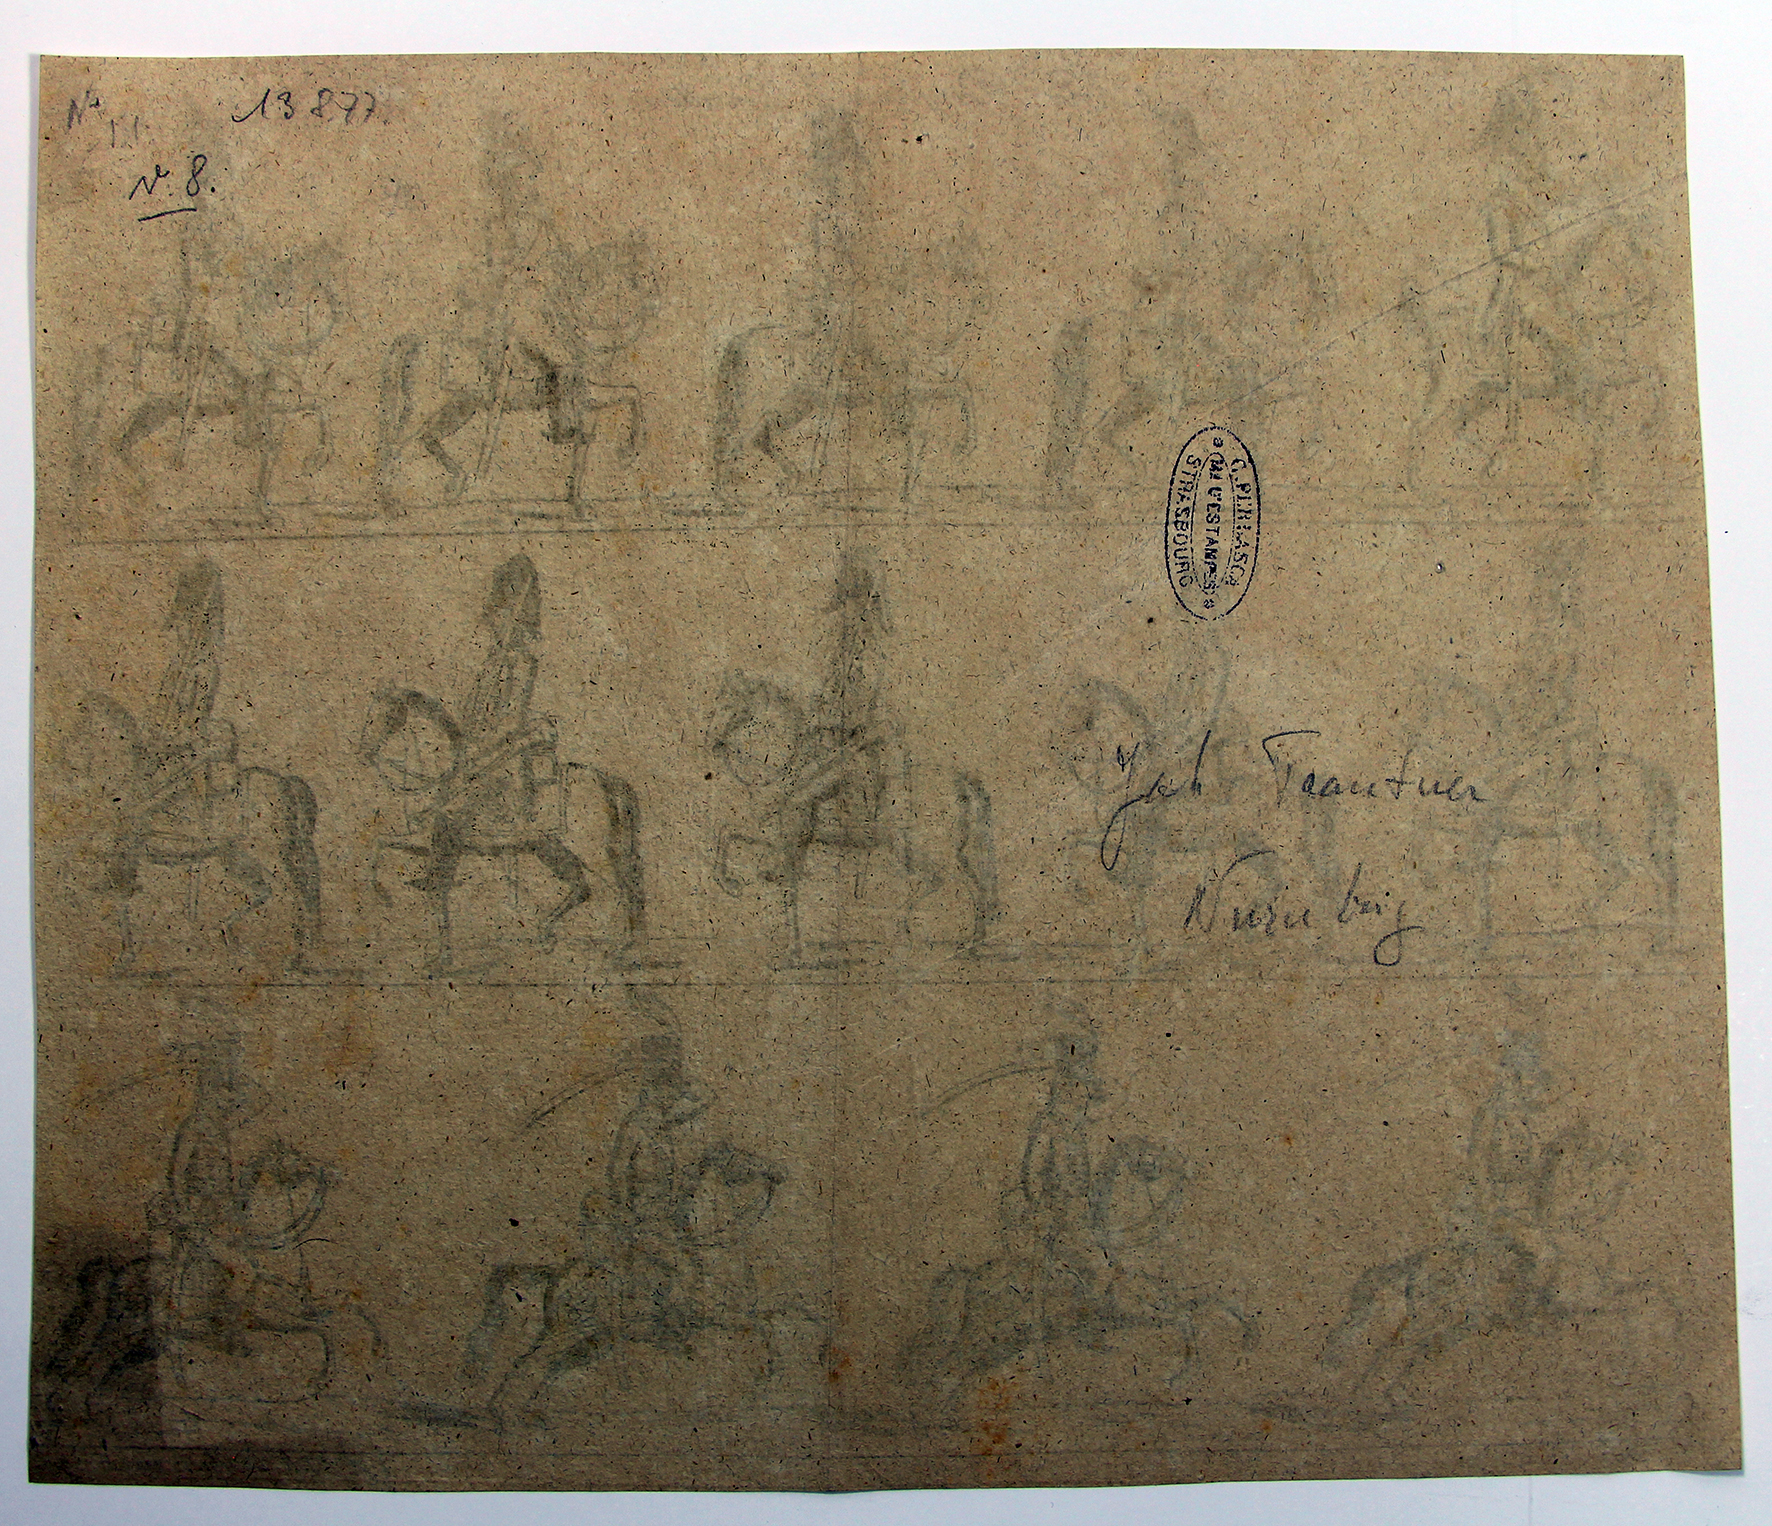 No 13 877.
11.
No. 8.
G. PERLASCA
Md D'ESTAMPES
STRASBOURG
Joh Trautner
Nürnberg